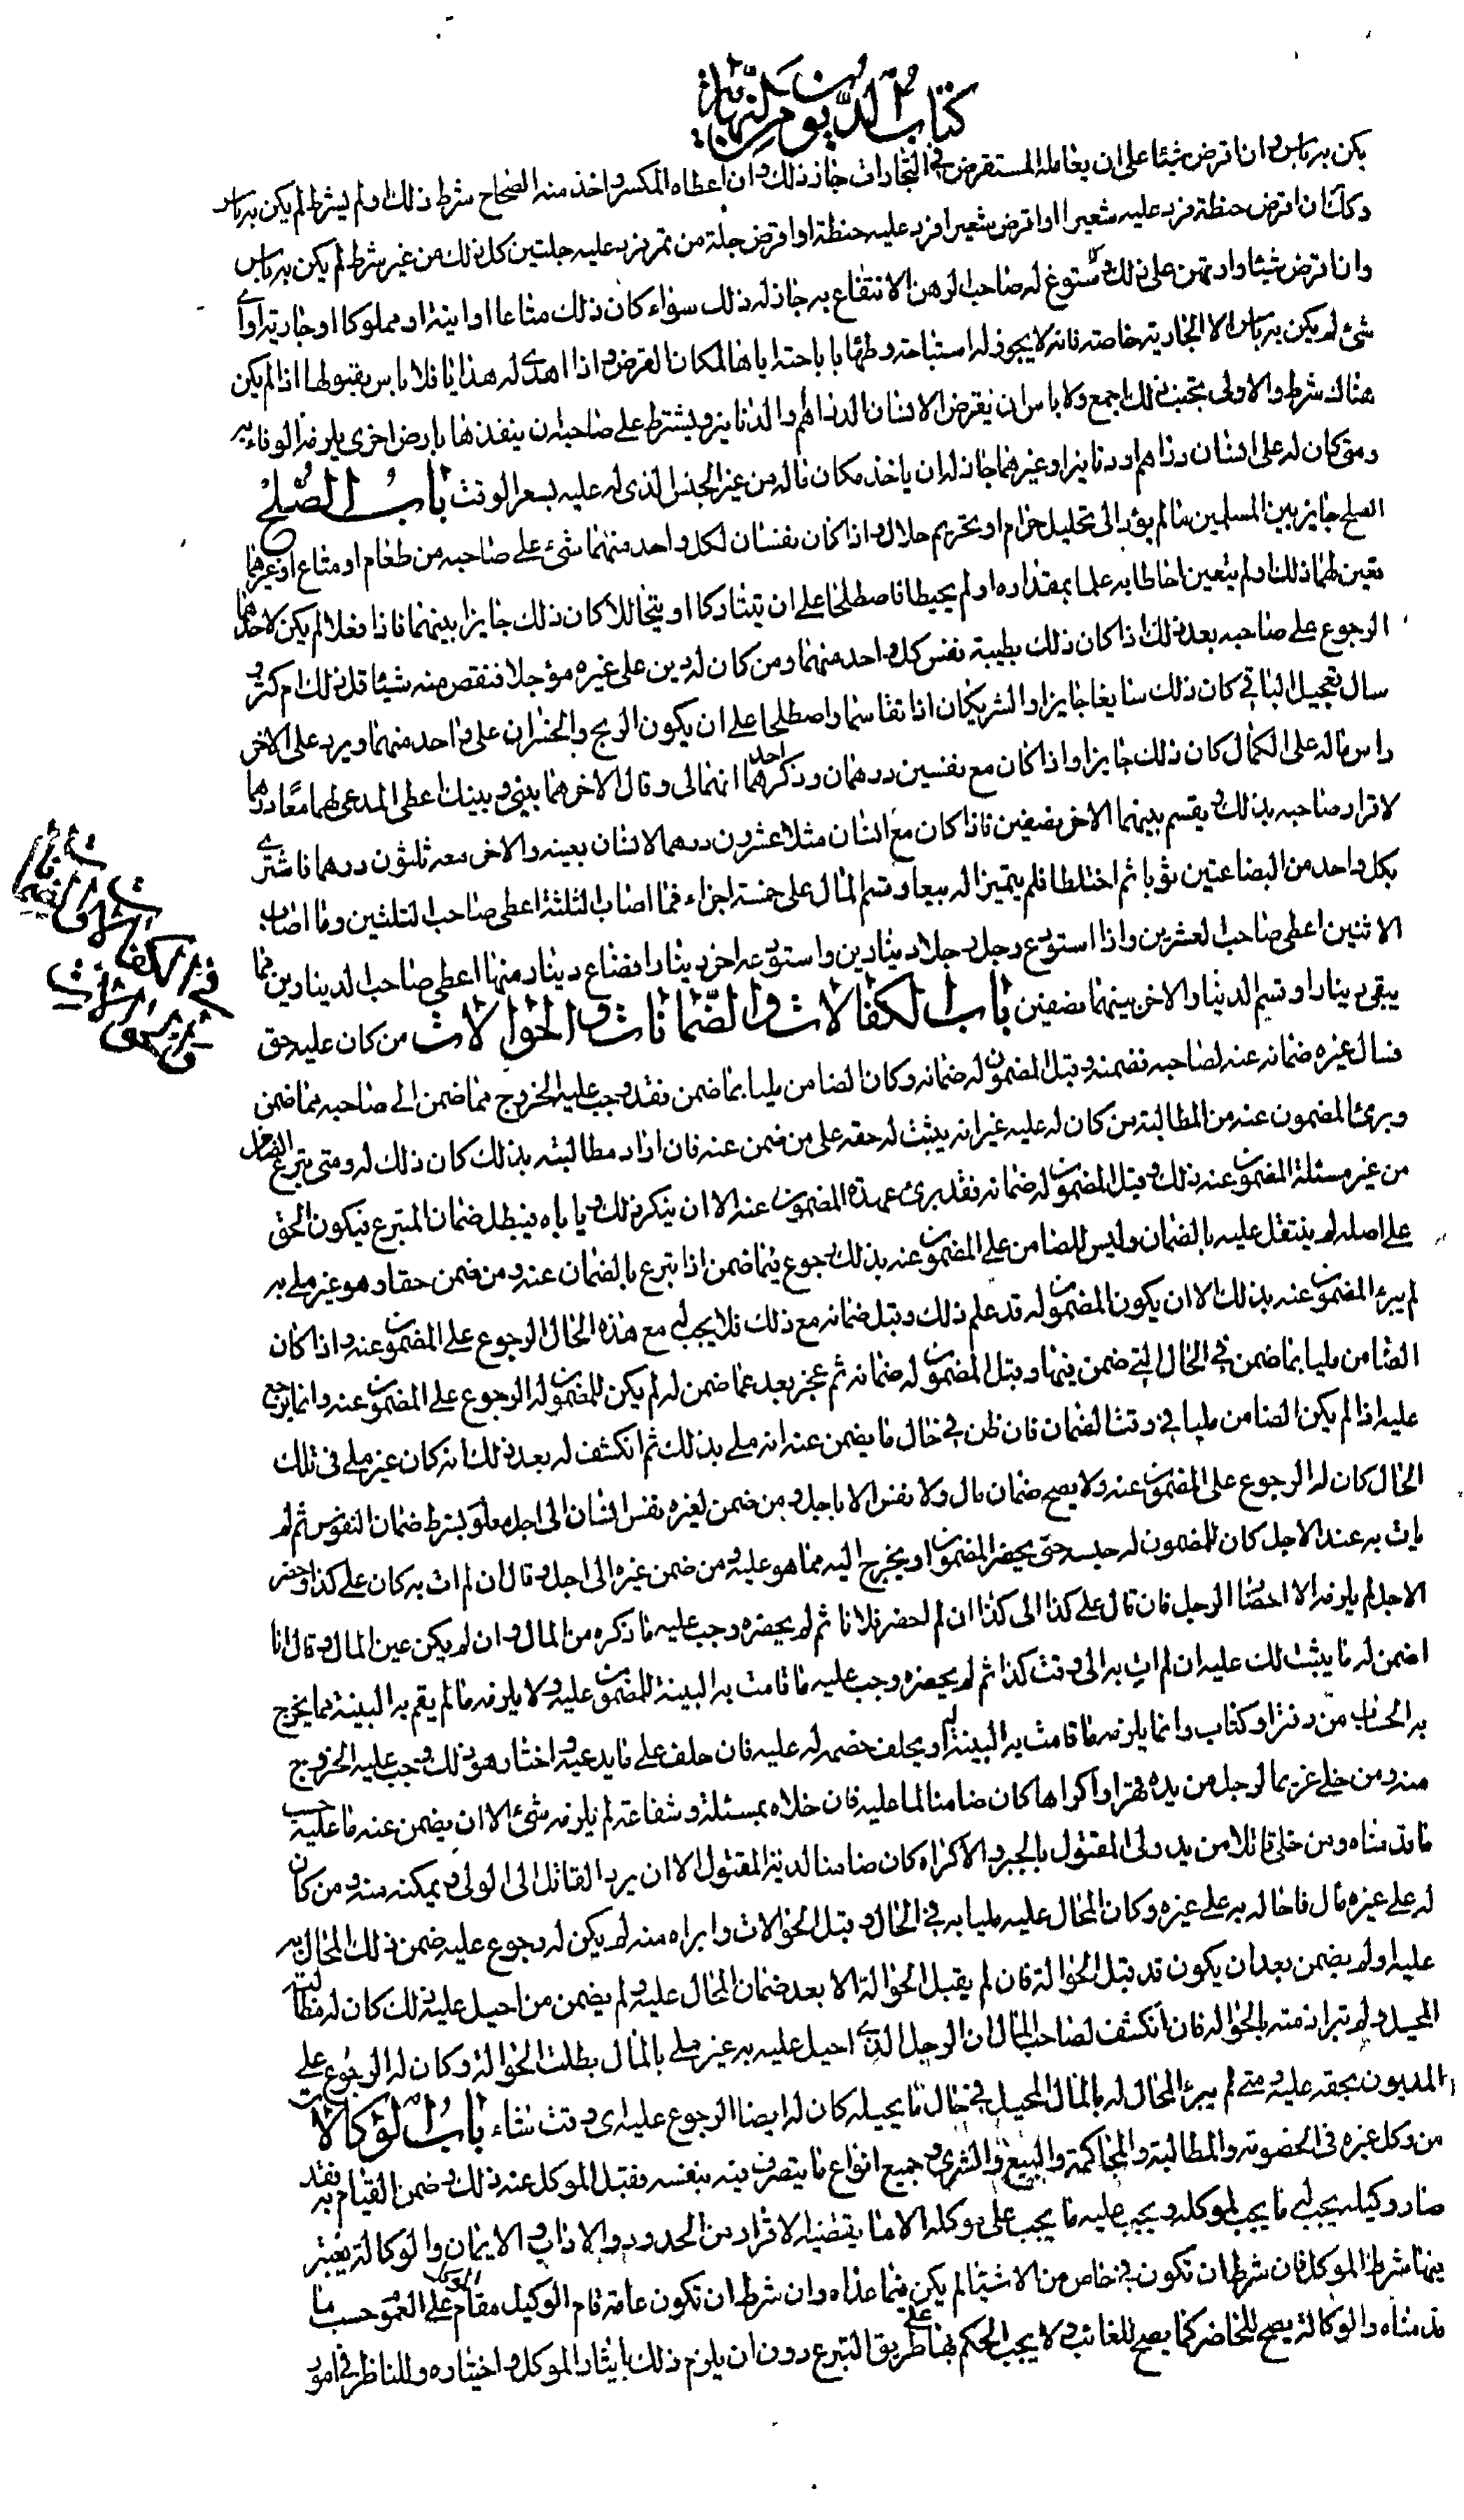 كتاب الديون من النهاية
يكن به باس وان اقرض شيئا على ان يعامله المستقرض في التجارات جاز ذلك وان اعطاه المكسر واخذ منه الصحاح شرط ذلك او لم يشرط لم يكن به باس
وكك ان اقرض حنطة فرد عليه شعيرا او اقرض شعيرا فرد عليه حنطة او اقرض جلة من تمر فرد عليه جلتين كل ذلك من غير شرط لم يكن به باس
وان اقرض شيئا وارتهن على ذلك وسوغ له صاحب الرهن الانتفاع به جاز له ذلك سواء كان ذلك متاعا او انية او مملوكا او جارية او اي
شئ لم يكن به باس الا الجارية خاصة فانه لا يجوز له استباحة وطئها باباحته اياها لمكان القرض واذا اهدى له هدايا فلا باس بقبولها اذا لم يكن
هناك شرط والاولى تجنب ذلك اجمع ولا باس ان يقرض الانسان الدراهم والدنانير ويشترط على صاحبه ان ينقدها بارض اخرى يلزمه الوفاء به
ومتى كان له على انسان دراهم او دنانير او غيرهما جاز له ان ياخذ مكان ماله من غير الجنس الذى له عليه بسعر الوقت باب الصلح
الصلح جايز بين المسلمين ما لم يؤد الى تحليل حرام او تحريم حلال واذا كان نفسان لكل واحد منهما شئ على صاحبه من طعام او متاع او غيرهما
تعين لهما ذلك او لم يتعين احاطا به علما بمقداره او لم يحيطا فاصطلحا على ان يتتاركا او يتحاللا كان ذلك جايزا بينهما فاذا فعلا لم يكن لاحدهما
الرجوع على صاحبه بعد ذلك اذا كان ذلك بطيبة نفس كل واحد منهما ومن كان له دين على غيره مؤجلا فنقص منه شيئا قل ذلك ام كثر و
سال تعجيل الباقي كان ذلك سايغا جايزا والشريكان اذا تقاسما واصطلحا على ان يكون الربح والخسران على واحد منهما ويرد على الاخر
راس ماله على الكمال كان ذلك جايزا واذا كان مع نفسين درهمان وذكر احدهما انهما لى وقال الاخر هما بينى وبينك اعطى المدعى لهما معا درهما
لاقرار صاحبه بذلك ويقسم بينهما الاخر نصفين فاذا كان مع انسان مثلا عشرون درهما لانسان بعينه والاخر معه ثلثون درهما فاشترى
بكل واحد من البضاعتين ثوبا ثم اختلطا فلم يتميزا له بيعا وقسم المال على خمسة اجزاء فما اصاب الثلثة اعطى صاحب الثلثين وما اصاب
الاثنين اعطى صاحب العشرين واذا استودع رجل رجلا دينارين واستودعه اخر دينارا فضاع دينار منها اعطى صاحب الدينارين مما
يبقى دينارا وقسم الدينار الاخر بينهما نصفين باب الكفالات والضمانات والحوالات من كان عليه حق
فسال غيره ضمانه عنه لصاحبه فضمنه وقبل المضمون له ضمانه وكان الضامن مليا بما ضمن فقد وجب عليه الخروج مما ضمن الى صاحبه بما ضمن
وبرئ المضمون عنه من المطالبة من كان له عليه غير انه يثبت له حقه على من ضمن عنه فان اراد مطالبته بذلك كان ذلك له ومتى تبرع الضامن
من غير مسئلة المضمون عنه ذلك وقبل المضمون له ضمانه فقد برئ عهدة المضمون عنه الا ان ينكر ذلك وياباه فيبطل ضمان المتبرع فيكون الحق
على اصله لم ينتقل عليه بالضمان وليس للضامن على المضمون عنه بذلك رجوع فيما ضمن اذا تبرع بالضمان عنه ومن ضمن حقا وهو غير ملى به
لم يبرء المضمون عنه بذلك الا ان يكون المضمون له قد علم ذلك وقبل ضمانه مع ذلك فلا يجب له مع هذه الحال الرجوع على المضمون عنه واذا كان
الضامن مليا بما ضمن في الحال التي ضمن فيها وقبل المضمون له ضمانه ثم عجز بعد عما ضمن له لم يكن للمضمون له الرجوع على المضمون عنه وانما يرجع
عليه اذا لم يكن الضامن مليا في وقت الضمان فان ظن في حال ما يضمن عنه انه ملى بذلك ثم انكشف له بعد ذلك انه كان غير ملى في تلك
الحال كان له الرجوع على المضمون عنه ولا يصح ضمان مال ولا نفس الا باجل ومن ضمن لغيره نفس انسان الى اجل معلوم بشرط ضمان النفوس ثم لم
يات به عند الاجل كان للمضمون له حبسه حتى يحضر المضمون او يخرج اليه مما هو عليه ومن ضمن غيره الى اجل وقال ان لم ات به كان على كذا وحضر
الاجل لم يلزمه الا احضار الرجل فان قال على كذا الى كذا ان لم احضر فلانا ثم لم يحضره وجب عليه ما ذكره من المال وان لم يكن عين المال وقال انا
اضمن له ما يثبت لك عليه ان لم ات به الى وقت كذا ثم لم يحضره وجب عليه ما قامت به البينة للمضمون عليه ولا يلزمه ما لم يقم به البينة مما يخرج
به الحساب من دفتر او كتاب وانما يلزمه ما قامت به البينة له او يحلف خصمه له عليه فان حلف على ما يدعيه واختار هو ذلك وجب عليه الخروج
منه ومن خلى غريما لرجل من يده قهرا واكراها كان ضامنا لما عليه فان خلاه بمسئلة وشفاعة لم يلزمه شئ الا ان يضمن عنه ما عليه حسب
ما قدمناه ومن خلى قاتلا من يد ولى المقتول بالجبر والاكراه كان ضامنا لدية المقتول الا ان يرد القاتل الى الولى ويمكنه منه ومن كان
له على غيره مال فاحاله به على غيره وكان المحال عليه مليا به في الحال وقبل الحوالات وابراه منه لم يكن له رجوع عليه ضمن ذلك المحال به
عليه او لم يضمن بعد ان يكون قد قبل الحوالة فان لم يقبل الحوالة الا بعد ضمان المحال عليه ولم يضمن من احيل عليه ذلك كان له مطالبة
المحيل ولم تبرا ذمته بالحوالة فان انكشف لصاحب المال ان الرجل الذى احيل عليه به غير ملى بالمال بطلت الحوالة وكان له الرجوع على
المديون بحقه عليه ومتى لم يبرئ المحال له بالمال المحيل في حال ما يحيله كان له ايضا الرجوع عليه اى وقت شاء باب الوكالات
من وكل غيره في الخصومة والمطالبة والمحاكمة والبيع والشرى وجميع انواع ما يتصرف فيه بنفسه فقبل الموكل عنه ذلك وضمن القيام به فقد
صار وكيله يجب له ما يجب لموكله ويجب عليه ما يجب على موكله الا ما يقتضيه الاقرار من الحدود والاداب والايمان والوكالة يعتبر
فيها شرط الموكل فان شرط ان تكون في خاص من الاشياء لم يكن فيما عداه وان شرط ان تكون عامة قام الوكيل مقام الموكل على العموم حسب ما
قدمناه والوكالة يصح للحاضر كما يصح للغائب ولا يجب الحكم بها على طريق التبرع دون ان يلزم ذلك بايثار الموكل واختياره وللناظر في امور